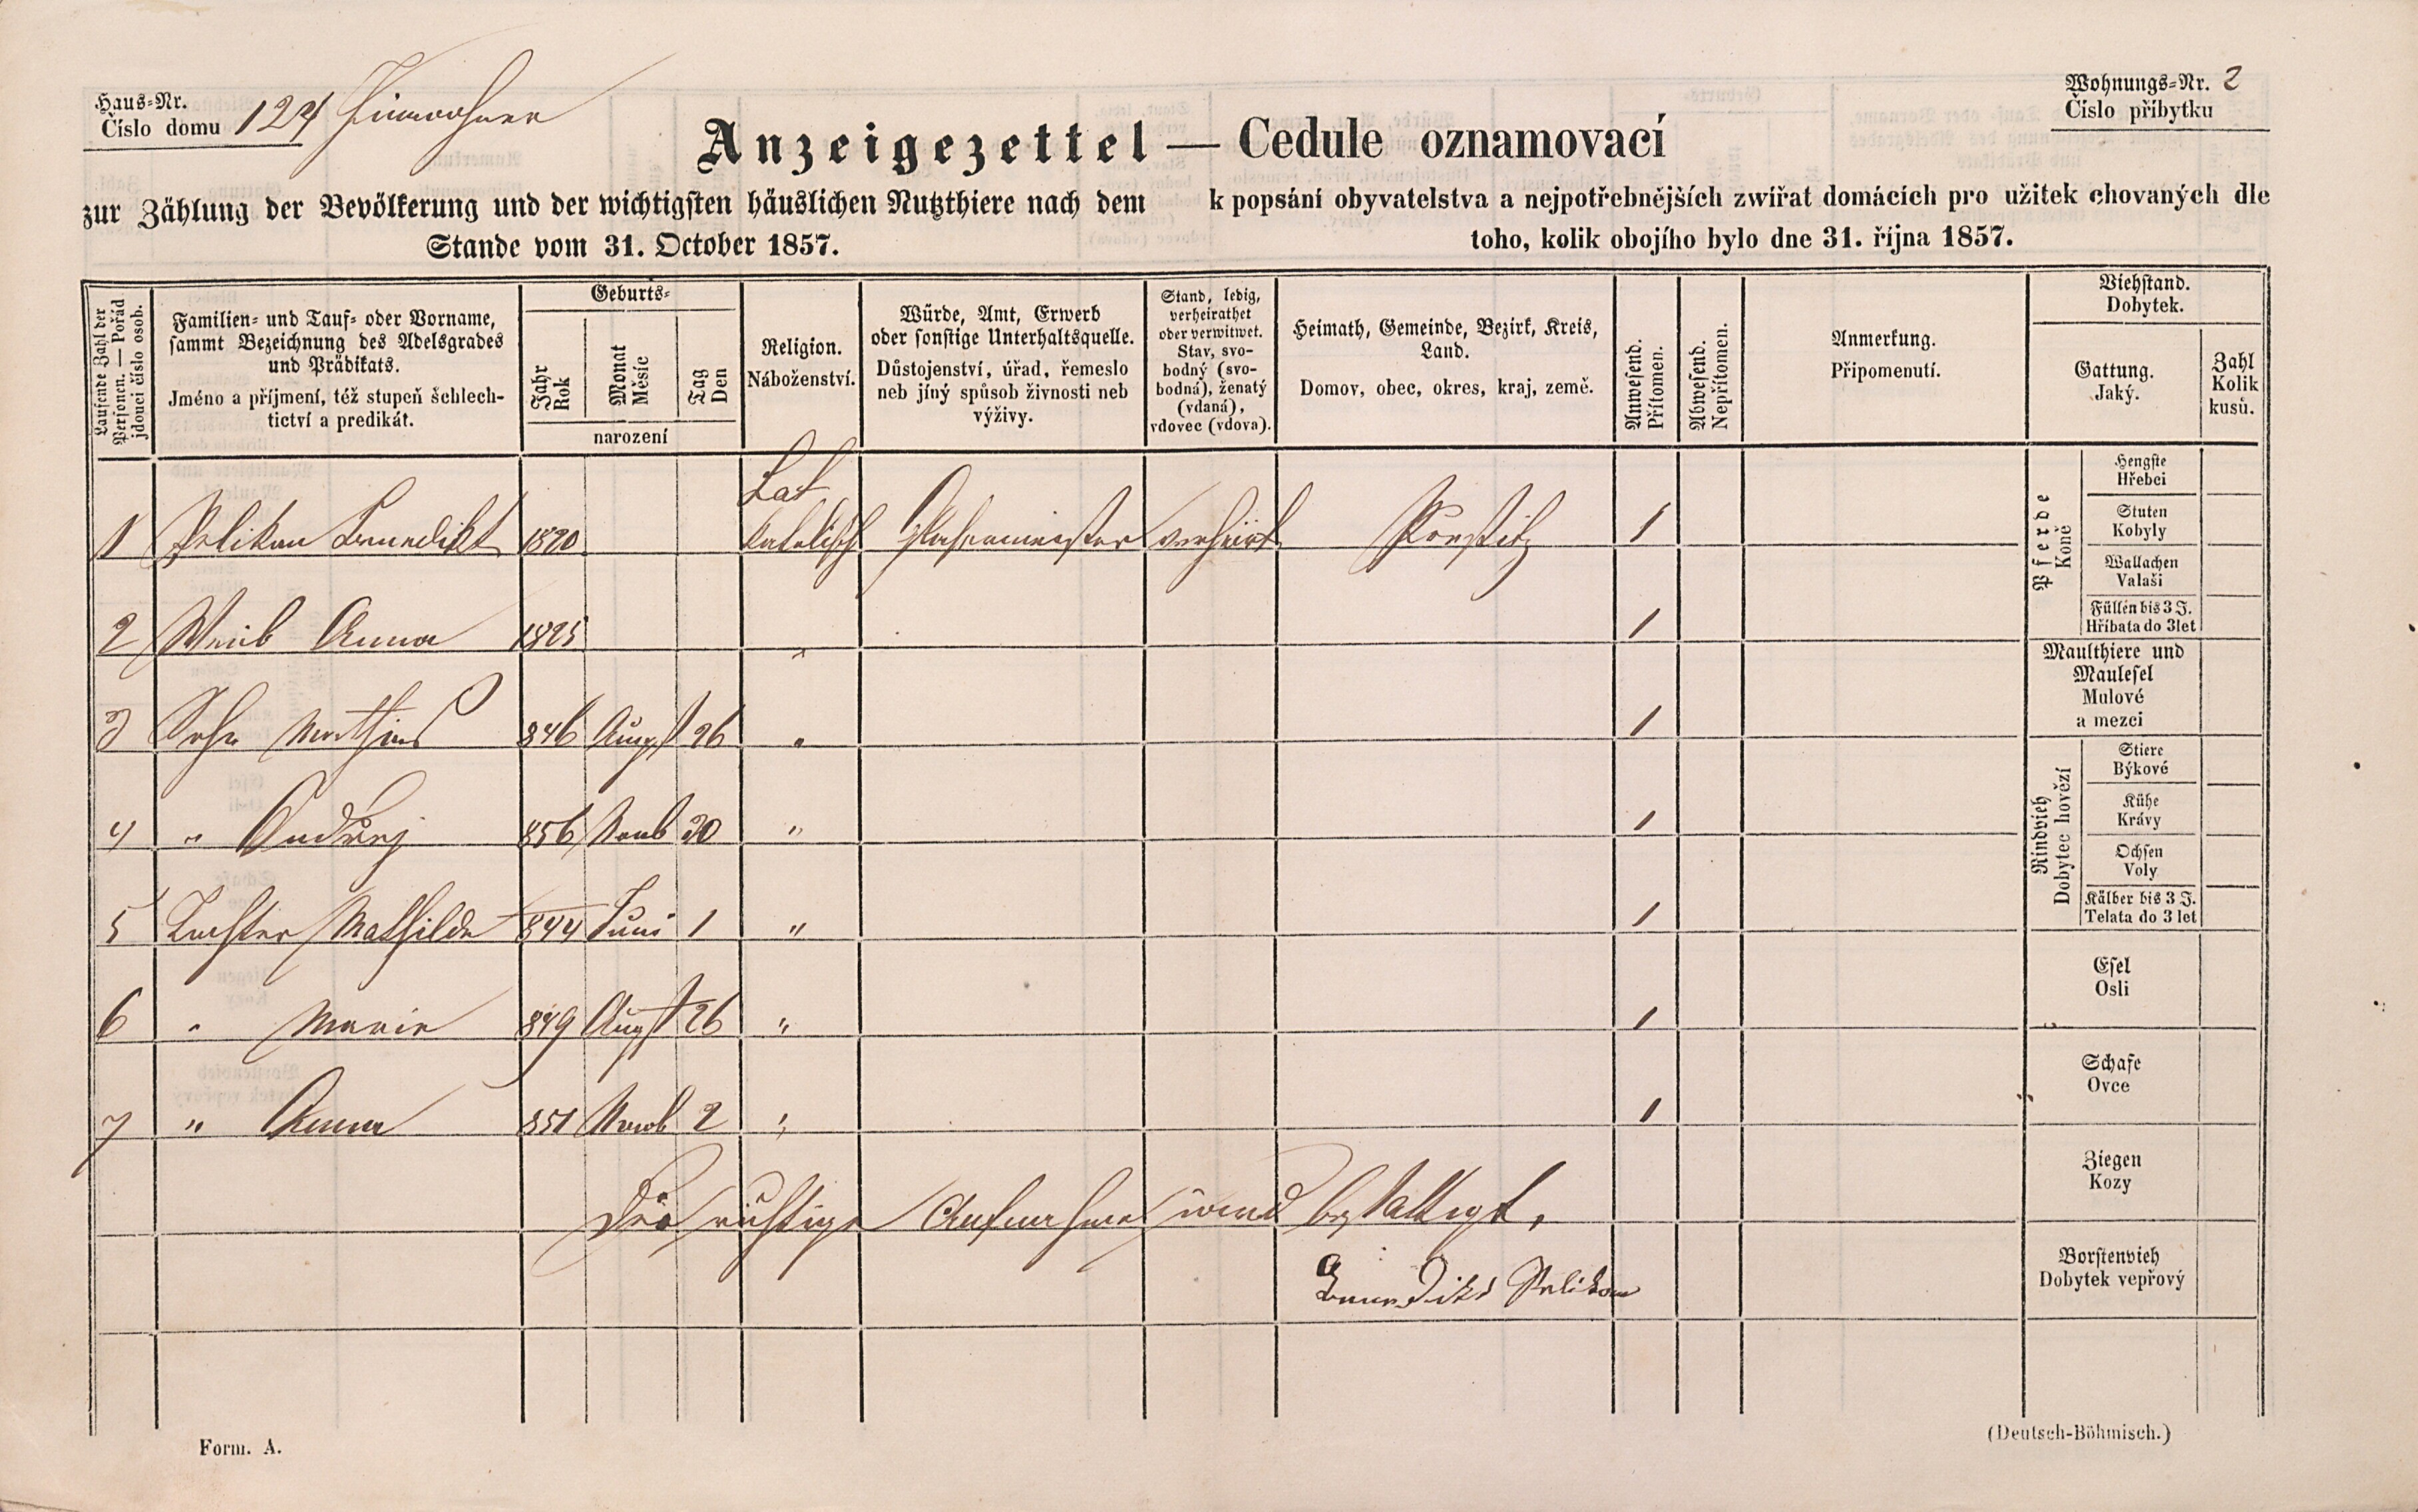 Haus-Nr.
Číslo domu 124 Hinwohner
Wohnungs-Nr. 2
Číslo příbytku
Anzeigezettel — Cedule oznamovací
zur Zählung der Bevölkerung und der wichtigsten häuslichen Nutzthiere nach dem
Stande vom 31. October 1857.
k popsání obyvatelstva a nejpotřebnějších zwířat domácích pro užitek chovaných dle
toho, kolik obojího bylo dne 31. října 1857.
Laufende Zahl der
Personen. — Pořád
jdoucí číslo osob.
Familien- und Tauf- oder Vorname,
sammt Bezeichnung des Adelsgrades
und Prädikats.
Jméno a příjmení, též stupeň šchlech-
tictví a predikát.
Geburts-
Jahr
Rok
Monat
Měsíc
Tag
Den
narození
Religion.
Náboženství.
Würde, Amt, Erwerb
oder sonstige Unterhaltsquelle.
Důstojenství, úřad, řemeslo
neb jiný spůsob živnosti neb
výživy.
Stand, ledig,
verheirathet
oder verwitwet.
Stav, svo-
bodný (svo-
bodná), ženatý
(vdaná),
vdovec (vdova).
Heimath, Gemeinde, Bezirk, Kreis,
Land.
Domov, obec, okres, kraj, země.
Anwesend.
Přítomen.
Abwesend.
Nepřítomen.
Anmerkung.
Připomenutí.
Viehstand.
Dobytek.
Gattung.
Jaký.
Zahl
Kolik
kusů.
1 Pelikan Benedikt 1820 Kat katolisch verheirt 1
2 Weib Anna 1825 " 1
3 Sohn Mathias 846 Augst 26 " 1
4 " Andřej 856 Novb 30 " 1
5 Tochter Mathilde 844 Juni 1 " 1
6 " Marie 849 Augst 26 " 1
7 " Anna 851 Novb 2 " 1
Die richtige Aufnahme wird bestättigt,
Benedikt Pelikan
Pferde
Koně
Hengste
Hřebci
Stuten
Kobyly
Wallachen
Valaši
Füllen bis 3 J.
Hříbata do 3 let
Maulthiere und
Maulesel
Mulové
a mezci
Rindvieh
Dobytec hovězí
Stiere
Býkové
Kühe
Krávy
Ochsen
Voly
Kälber bis 3 J.
Telata do 3 let
Esel
Osli
Schafe
Ovce
Ziegen
Kozy
Borstenvieh
Dobytek vepřový
Form. A.
(Deutsch-Böhmisch.)